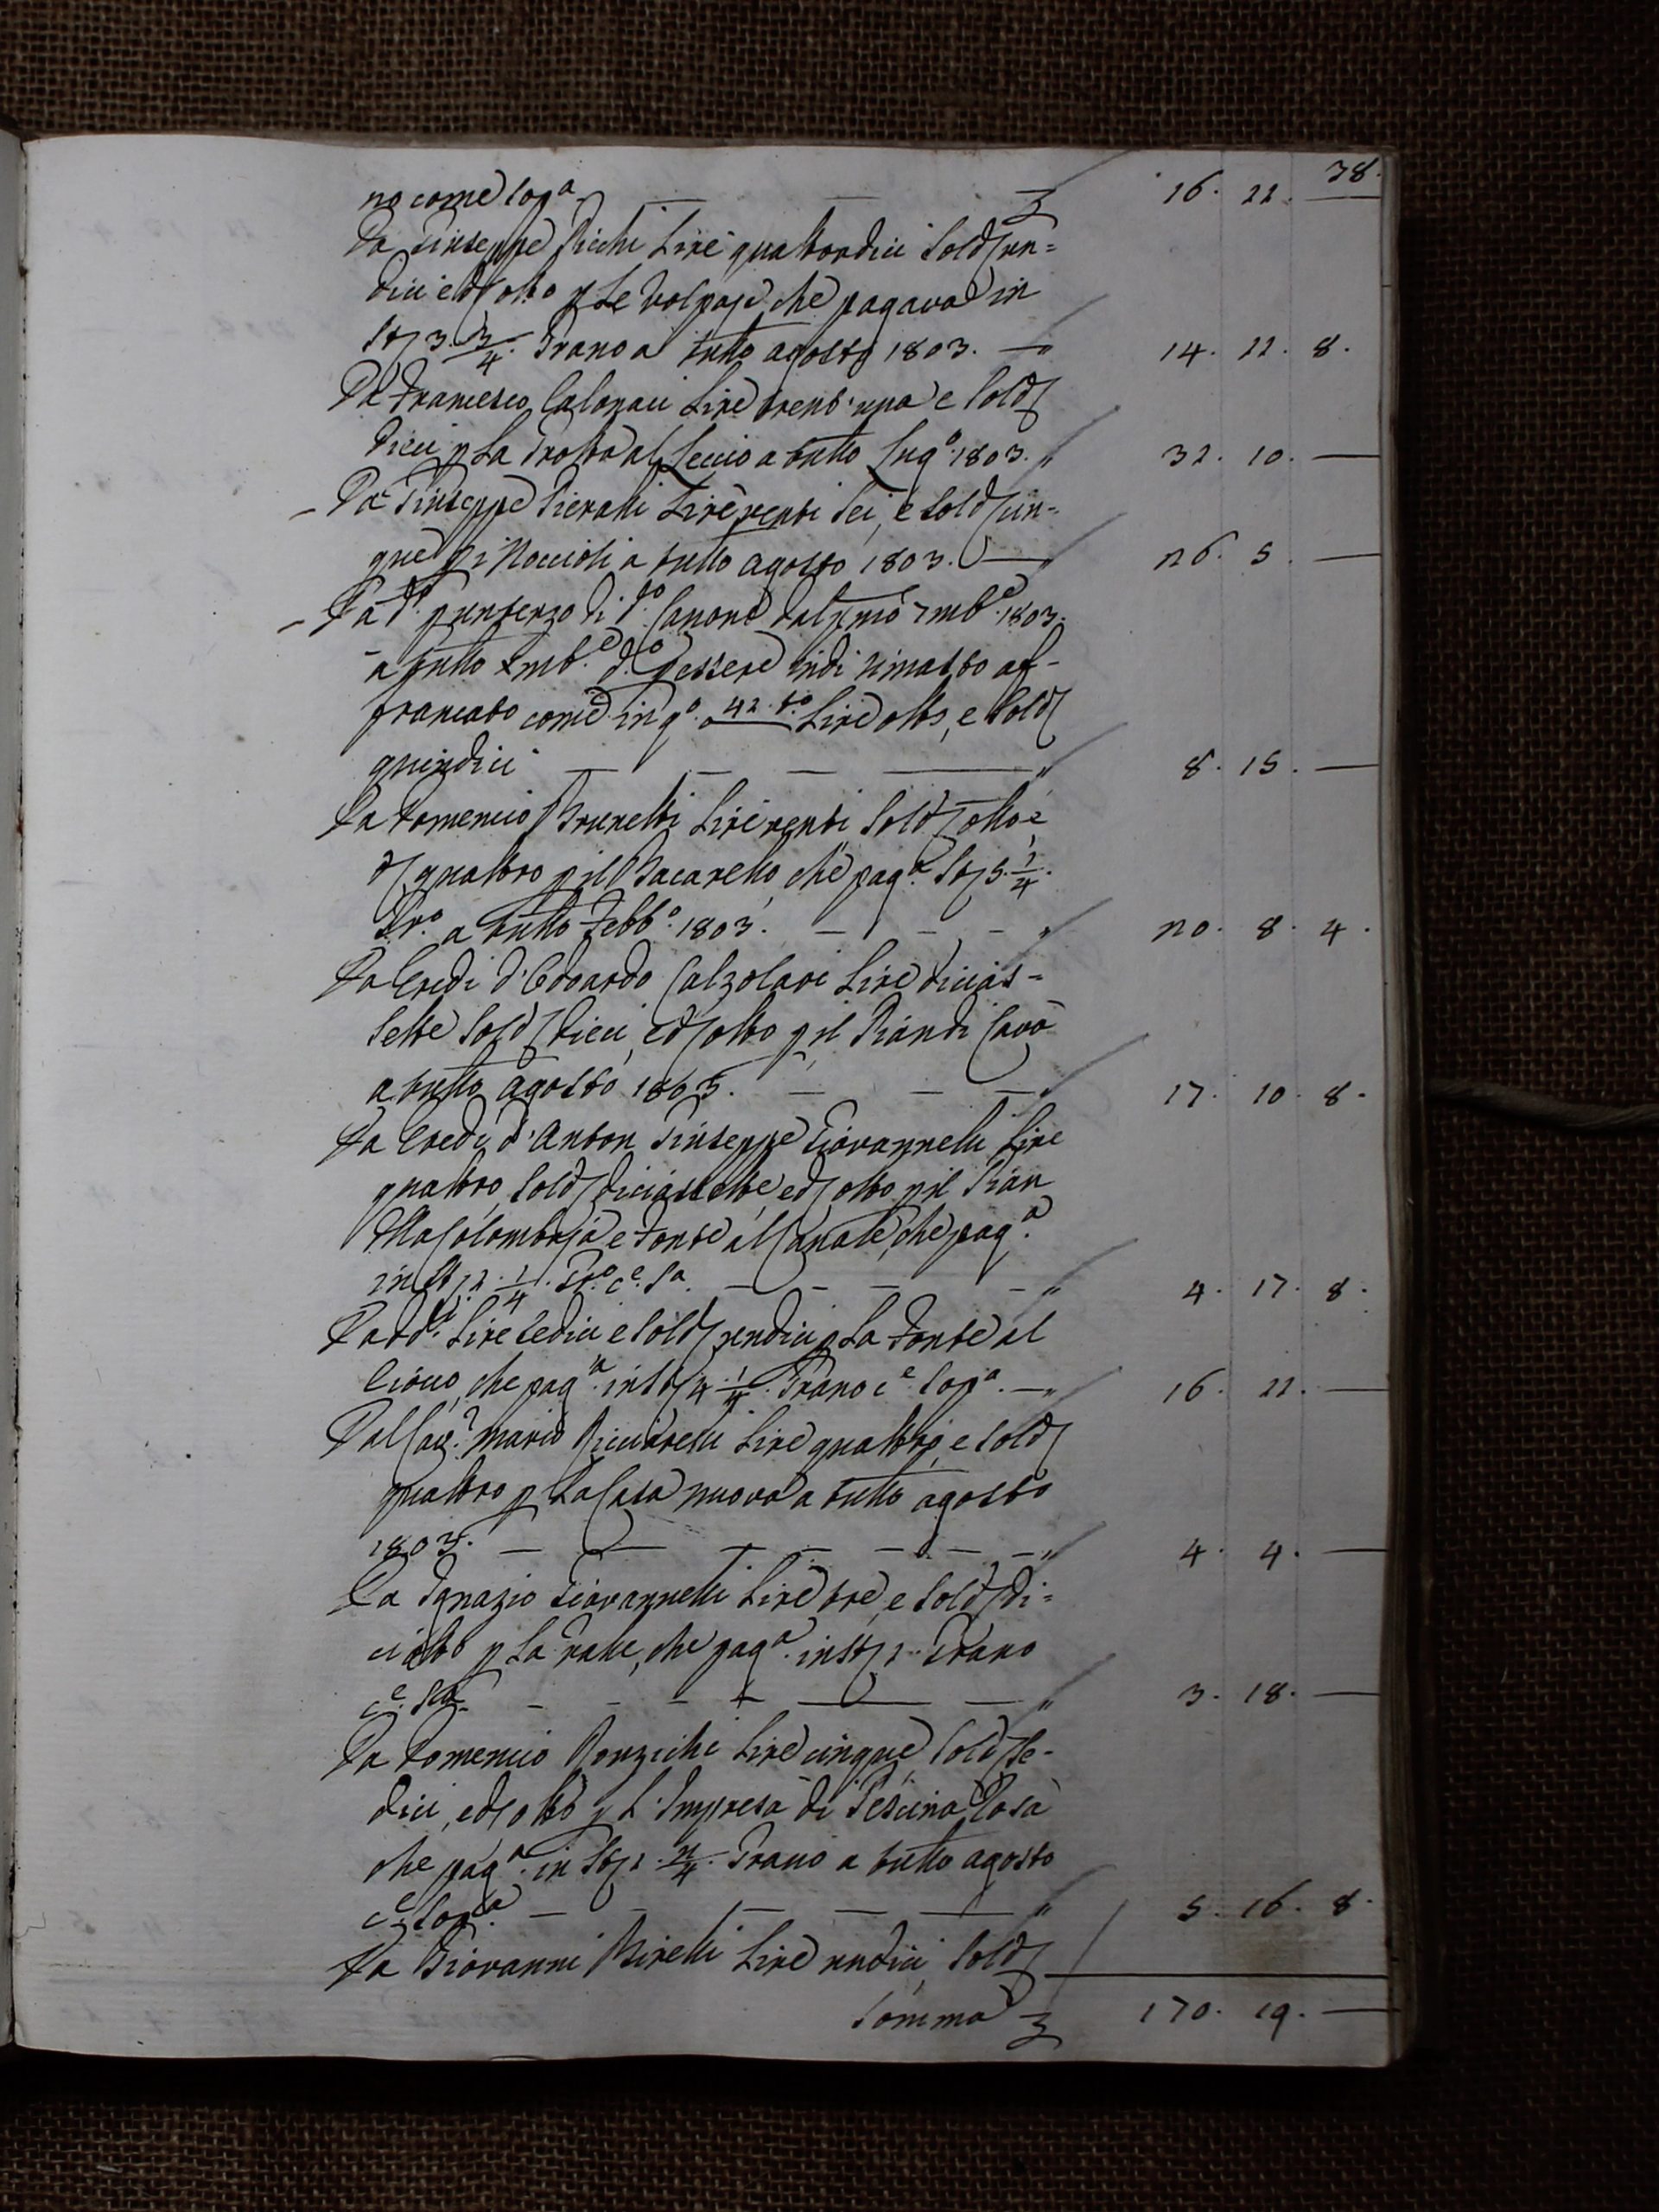 38.
no come sop.a — — £ 16. 11. —
Da Giuseppe Picchi Lire quattordici Sold un=
dici e d otto p Le Volpaje che pagava in
St 3. 3/4. Grano a tutto agosto 1803. — " 14. 11. 8.
Da Francesco Calonaci Lire trent'una e Sold
dieci p La Grotta al Leccio a tutto Lug.o 1803. " 31. 10. —
Da Giuseppe Pieralli Lire venti sei, e Sold cin=
que p i Noccioli a tutto agosto 1803. — " 26. 5. —
Da d.o p un terzo di d.o Canone dal p.mo 7mb.e 1803.
a tutto Xmb.e d.o p essere indi rimasto af=
francato come in q.o a 42. t.o Lire otto, e Sold
quindici — — — — " 8. 15. —
Da Domenico Brunetti Lire venti Sold otto e
d quattro p il Bacarello, che pag.a St 5. 1/4.
Gr.o a tutto Febb.o 1803. — — — " 20. 8. 4.
Da Eredi d'Edoardo Calzolari Lire dicias=
sette Sold dieci, e d otto p il Piandi Cavo
a tutto agosto 1803. — — — " 17. 10. 8.
Da Eredi d'Anton Giuseppe Giovannelli Lire
quattro, Sold diciassette, e d otto p il Pian
alla Colombaja e Fonte al Canale, che pag.a
in St 1. 1/4. Gr.o c.e s.a — — — — " 4. 17. 8.
Da dd.i Lire sedici e Sold undici p La Fonte al
Cioco, che pag.a in St 4. 1/4. Grano c.e sop.a. — " 16. 11. —
Dal Cav.r Mario Ricciarelli Lire quattro, e Sold
quattro p La Casa nuova a tutto agosto
1803. — — — — — — — " 4. 4. —
Da Ignazio Giovannelli Lire tre, e Sold di=
ciotto p La Valle, che pag.a in St 1. Grano
c.e s.a — — — — — — " 3. 18. —
Da Domenico Ronzichi Lire cinque, Sold se=
dici, e d otto p L'Impresa di Pescina Rosa
che pag.a in St 1. 2/4. Grano a tutto agosto
c.e sop.a. — — — — — " 5. 16. 8.
Da Giovanni Birelli Lire undici, Sold
Somma £ 170. 19. —